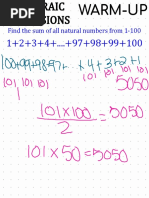 RAIC
SIONS
WARM-UP
Find the sum of all natural numbers from 1-100
1+2+3+4+....+97+98+99+100
100+99+98+97+ +4+3+2+1
101 101 101 101 101 101
101×100 = 5050
2
101 × 50 = 5050